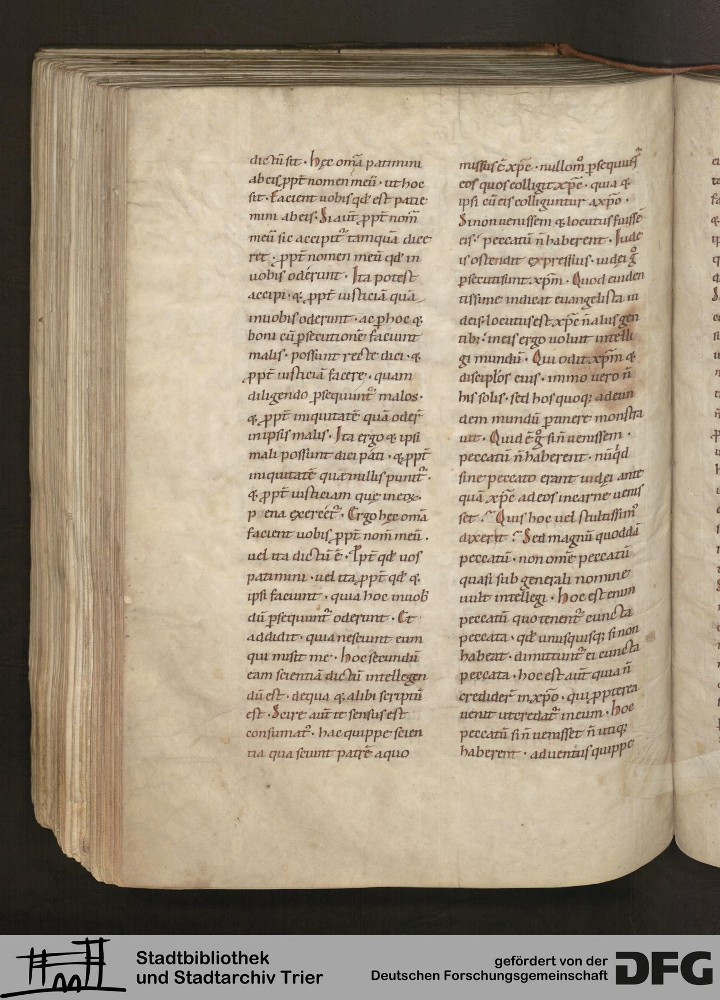 dictũ sit · hęc om̃a patimini
ab eis ꝓpt̃ nomen meũ · ut hoc
sit · facient uobis qđ est patie
mini ab eis · Si aut̃ ꝓpt̃ nom̃
meũ sic accipit᷒ tamquã dice
ret · ꝓpt̃ nomen meũ qđ in
uobis oderunt · Ita potest
accipi · & ꝓpt̃ iusticiã quã
in uobis oderunt · ac ꝑ hoc &
boni cũ ꝑsecutionẽ faciunt
malis · possunt recte dici · &
ꝓpt̃ iusticiã facere · quam
diligendo ꝑsequunt᷒ malos ·
& ꝓpt̃ iniquitatẽ quã oder̃
in ipsis malis · Ita ergo & ipsi
mali possunt dici pati · & ꝓpt̃
iniquitatẽ quæ in illis punit᷒ ·
& ꝓpt̃ iusticiam quę in eoꝝ
pena exercet᷒ · Ergo hęc om̃a
facient uobis ꝓpt̃ nom̃ meũ ·
uel ita dictũ ẽ · Ꝓpt̃ qđ uos
patimini · uel ita ꝓpt̃ qđ &
ipsi faciunt · quia hoc in uob̃
dũ ꝑsequunt᷒ oderunt · Et
addidit · quia nesciunt eum
qui misit me · hoc secundũ
eam scientiã dictũ intellegen
dũ est · de qua & alibi scriptũ
est · Scire aut̃ te sensus est
consumat᷒ · hac quippe scien
tia qua sciunt patrẽ a quo
missus ẽ xp̃c · nullom̊ ꝑsequunt᷒
eos quos colligit xp̃c · quia &
ipsi cũ eis colliguntur a xp̃o ·
Si non uenissem & locutus fuissẽ
eis · peccatũ ñ haberent · Iude
is ostendit expressius · iudei g̊
ꝑsecuti sunt xp̃m · Quod euiden
tissime indicat euangelista iu
deis · locutus est xp̃c ñ aliis gen
tib; · in eis ergo uoluit intelli
gi mundũ · Qui odit xp̃m &
discip̃los eius · immo uero ñ
his solis · sed hos quoq; ad eun
dem mundũ ꝑtinere monstra
uit · Quid ẽ g̊ · si ñ uenissem ·
peccatũ ñ haberent · nũq̇d
sine peccato erant iudęi ante
quã xp̃c ad eos in carne uenis
set · Quis hoc uel stultissim᷒
dixerit · Sed magnũ quoddã
peccatũ · non om̃e peccatũ
quasi sub generali nomine
uult intellegi · hoc est enim
peccatũ quo tenent᷒ cuncta
peccata · qđ unusquisq; si non
habeat · dimittunt᷒ ei cuncta
peccata · hoc est aut̃ quia ñ
credider̃ in xp̃o · qui ꝓpterea
uenit ut credat᷒ in eum · hoc
peccatũ si ñ uenisset ñ utiq;
haberent · aduentus quippe
Stadtbibliothek
und Stadtarchiv Trier
gefördert von der
Deutschen Forschungsgemeinschaft
DFG